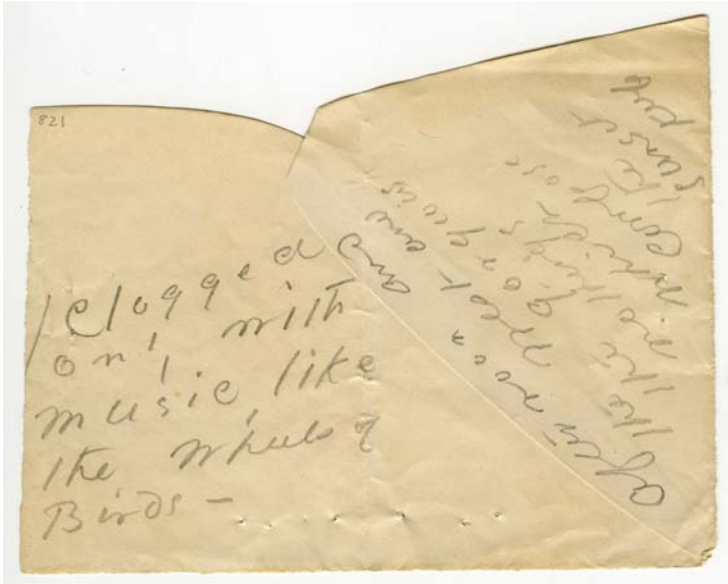 821
Clogged
only with
music, like
the Wheels of
Birds -
afternoon and
the West and
the gorgeous
nothings
which
compose
the
sunset
keep